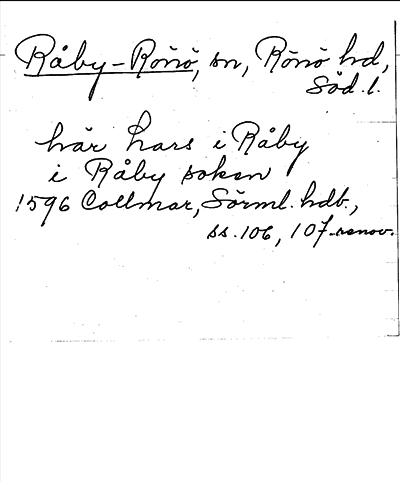 Råby-Rönö, sn, Rönö hd,
Söd. l.
här Lars i Råby
i Råby soken
1596 Collmar, Sörml. hdb.,
ss. 106, 107 renov.